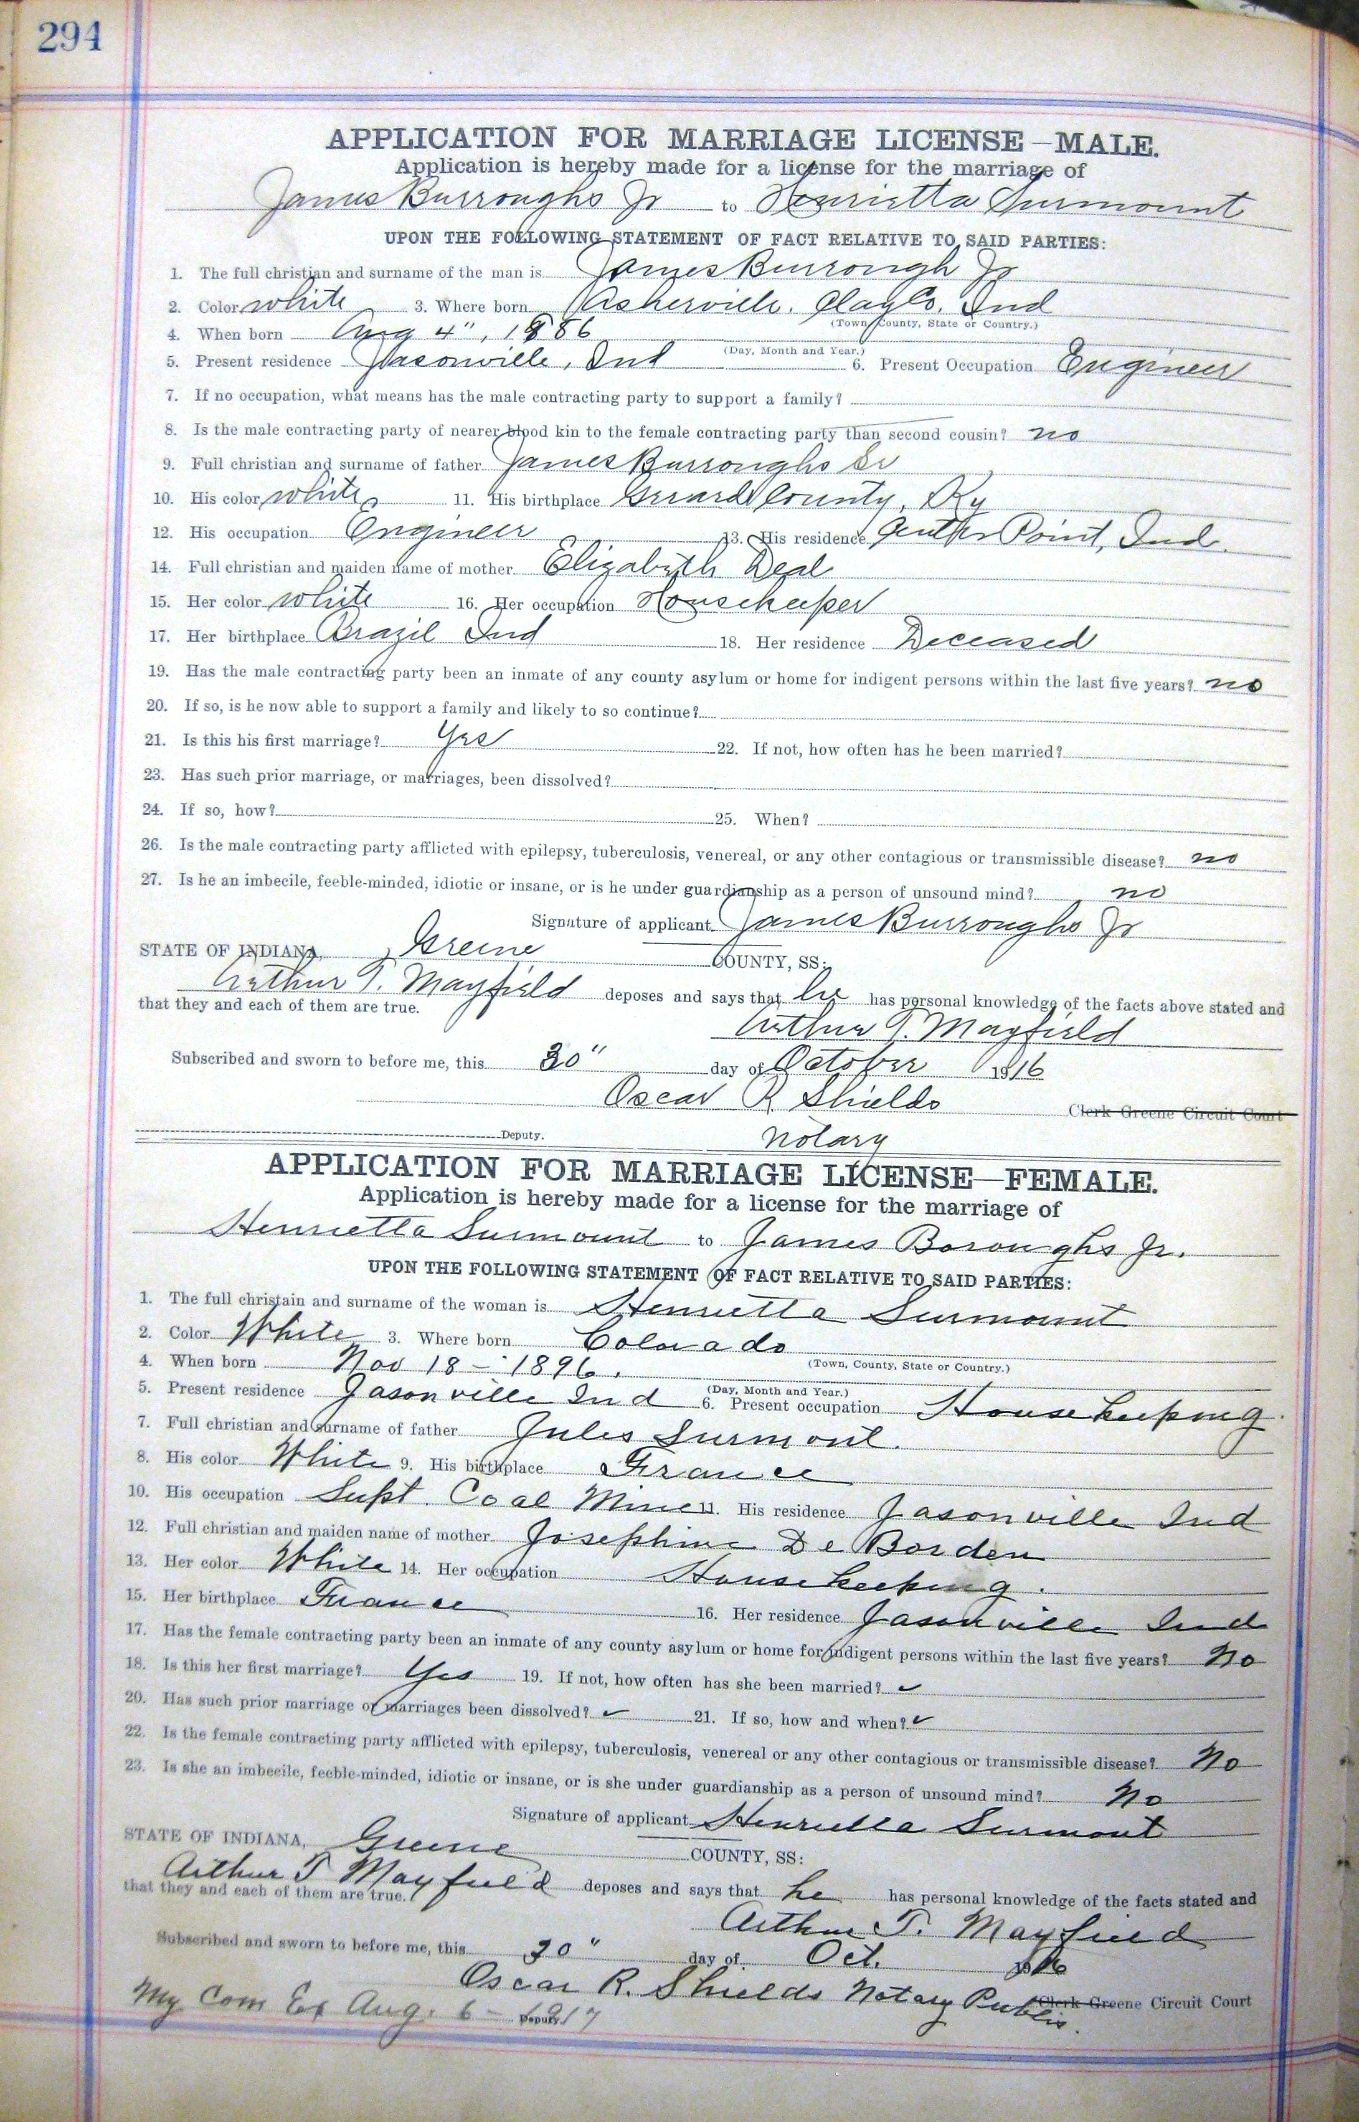 294
APPLICATION FOR MARRIAGE LICENSE—MALE.
Application is hereby made for a license for the marriage of
James Burroughs Jr to Henrietta Surmount
UPON THE FOLLOWING STATEMENT OF FACT RELATIVE TO SAID PARTIES:
1. The full christian and surname of the man is James Burrough Jr
2. Color white 3. Where born Asherville, Clay Co. Ind
(Town, County, State or Country.)
4. When born Aug 4", 1886
(Day, Month and Year.)
5. Present residence Jasonville, Ind 6. Present Occupation Engineer
7. If no occupation, what means has the male contracting party to support a family?
8. Is the male contracting party of nearer blood kin to the female contracting party than second cousin? no
9. Full christian and surname of father James Burroughs Sr
10. His color white 11. His birthplace Gerard County, Ky
12. His occupation Engineer 13. His residence Center Point, Ind.
14. Full christian and maiden name of mother Elizabeth Deal
15. Her color white 16. Her occupation Housekeeper
17. Her birthplace Brazil Ind 18. Her residence Deceased
19. Has the male contracting party been an inmate of any county asylum or home for indigent persons within the last five years? no
20. If so, is he now able to support a family and likely to so continue?
21. Is this his first marriage? Yes 22. If not, how often has he been married?
23. Has such prior marriage, or marriages, been dissolved?
24. If so, how? 25. When?
26. Is the male contracting party afflicted with epilepsy, tuberculosis, venereal, or any other contagious or transmissible disease? no
27. Is he an imbecile, feeble-minded, idiotic or insane, or is he under guardianship as a person of unsound mind? no
Signature of applicant James Burroughs Jr
STATE OF INDIANA, Greene COUNTY, SS:
Arthur T. Mayfield deposes and says that he has personal knowledge of the facts above stated and
that they and each of them are true.
Arthur T. Mayfield
Subscribed and sworn to before me, this 30" day of October 1916
Oscar R. Shields Clerk Greene Circuit Court
Deputy. Notary
APPLICATION FOR MARRIAGE LICENSE—FEMALE.
Application is hereby made for a license for the marriage of
Henrietta Surmount to James Boroughs Jr.
UPON THE FOLLOWING STATEMENT OF FACT RELATIVE TO SAID PARTIES:
1. The full christain and surname of the woman is Henrietta Surmount
2. Color White 3. Where born Colorado
(Town, County, State or Country.)
4. When born Nov 18 - 1896.
(Day, Month and Year.)
5. Present residence Jasonville Ind 6. Present occupation Housekeeping.
7. Full christian and surname of father Jules Surmont.
8. His color White 9. His birthplace France
10. His occupation Supt. Coal Mine 11. His residence Jasonville Ind
12. Full christian and maiden name of mother Josephine De Borden
13. Her color White 14. Her occupation Housekeeping.
15. Her birthplace France 16. Her residence Jasonville Ind
17. Has the female contracting party been an inmate of any county asylum or home for indigent persons within the last five years? No
18. Is this her first marriage? Yes 19. If not, how often has she been married? ✓
20. Has such prior marriage or marriages been dissolved? ✓ 21. If so, how and when? ✓
22. Is the female contracting party afflicted with epilepsy, tuberculosis, venereal or any other contagious or transmissible disease? No
23. Is she an imbecile, feeble-minded, idiotic or insane, or is she under guardianship as a person of unsound mind? No
Signature of applicant Henrietta Surmont
STATE OF INDIANA, Greene COUNTY, SS:
Arthur T Mayfield deposes and says that he has personal knowledge of the facts stated and
that they and each of them are true.
Arthur T. Mayfield
Subscribed and sworn to before me, this 30" day of Oct. 1916
Oscar R. Shields Notary Public. Clerk Greene Circuit Court
My Com Ex Aug. 6 - 1917 Deputy